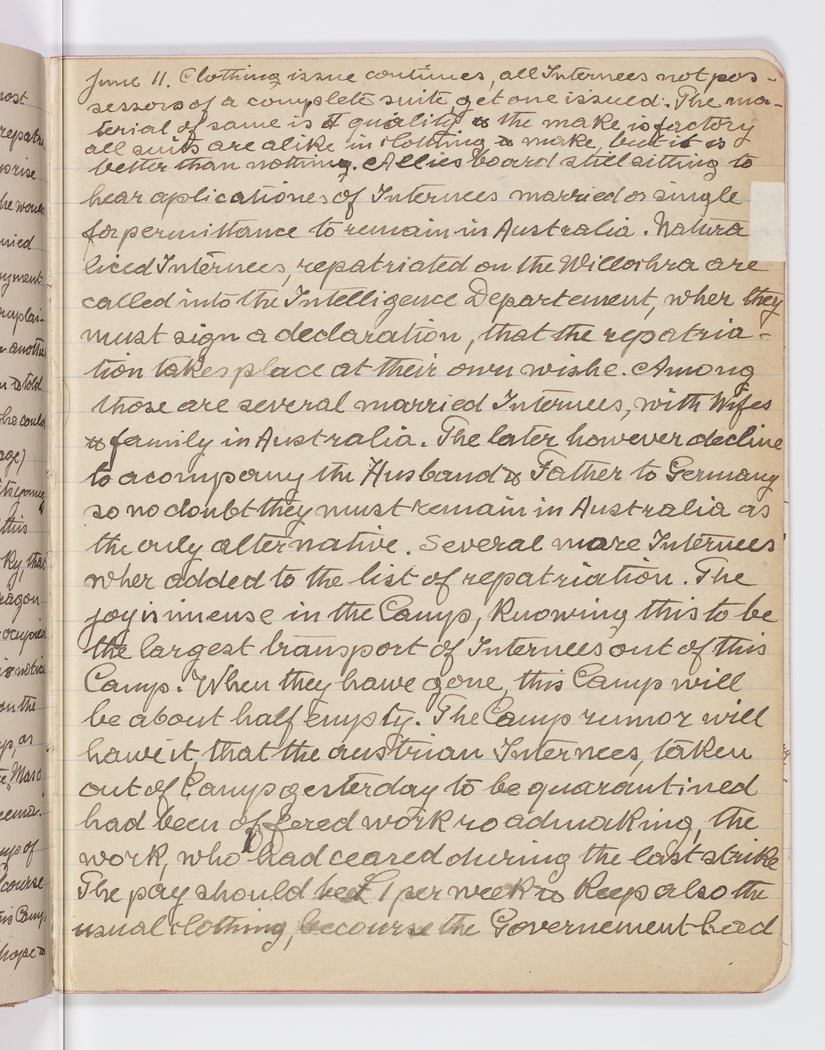 June 11. Clothing issue continues, all Internees not pos-
sessors of a complete suite, get one issued. The ma-
terial of same is A quality & the make is factory
all suits are alike in clothing & make, but it is
better than nothing. Allies board still sitting to
hear aplicationes of Internees married or single
for permittance to remain in Australia. Natura
liced Internees, repatriated on the Willochra are
called into the Intelligence Departement, wher they
must sign a declaration, that the repatria-
tion takes place at their own wishe. Among
those are several married Internees, with Wifes
& family in Australia. The later however decline
to acompany the Husband & Father to Germany
so no doubt they must remain in Australia as
the only alternative. Several more Internees
wher added to the list of repatriation. The
joy is imense in the Camp, knowing this to be
the largest transport of Internees out of this
Camp. When they hawe gone, this Camp will
be about half empty. The Camp rumor will
hawe it, that the austrian Internees, taken
out of Camp yesterday to be quarantined
had been offered work roadmaking, the
work, who had ceared during the last strike
The pay should be £1 per week & keep also the
usual clothing, becourse the Governement had
most
repatri
prise
he would
nied
yment
mplai-
r another
& told
he could
age)
this
Ky, that
ragon
ocupied
is notice
on the
p, as
Maro
eema.
ups of
course
is Camp
hope &